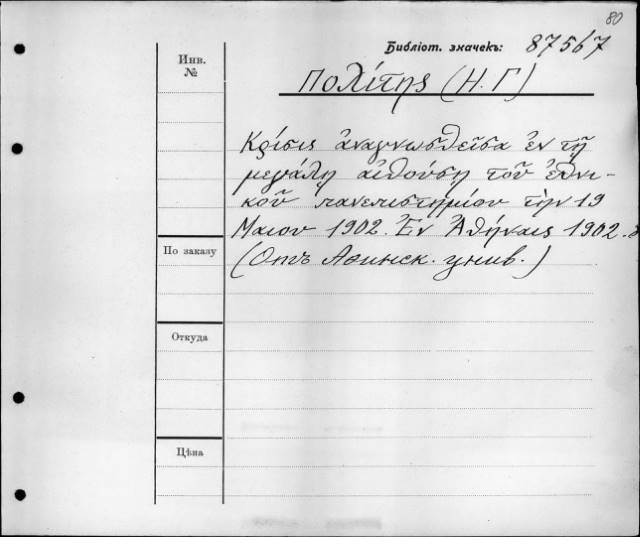 80
Библіот. значекъ: 87567
Инв.
№
Πολίτης (Η. Γ)
Κρίσις ἀναγνωσθεῖσα ἐν τῇ
μεγάλῃ αἰθούσῃ τοῦ ἐθνι-
κοῦ πανεπιστημίου τὴν 19
Μαιου 1902. Ἐν Ἀθήναις 1902. 8
(Отъ Афинск. унив.)
По заказу
Откуда
Цѣна